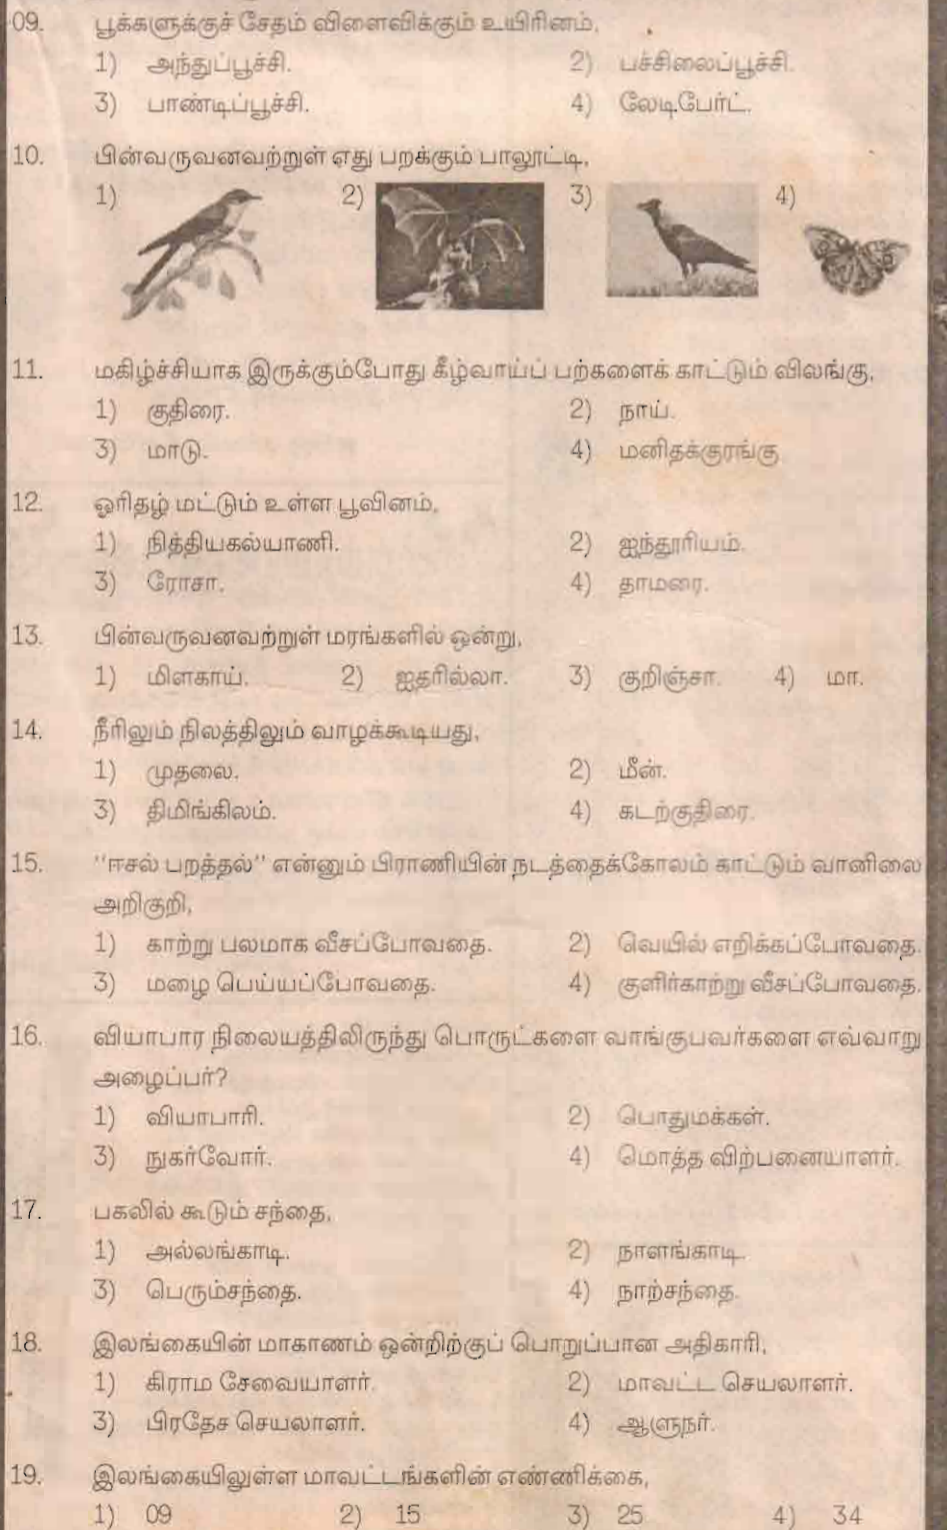 09. பூக்களுக்குச் சேதம் விளைவிக்கும் உயிரினம்,
1) அந்துப்பூச்சி. 2) பச்சிலைப்பூச்சி.
3) பாண்டிப்பூச்சி. 4) லேடிபேர்ட்.
10. பின்வருவனவற்றுள் எது பறக்கும் பாலூட்டி,
1) 2) 3) 4)
11. மகிழ்ச்சியாக இருக்கும்போது கீழ்வாய்ப் பற்களைக் காட்டும் விலங்கு,
1) குதிரை. 2) நாய்.
3) மாடு. 4) மனிதக்குரங்கு
12. ஓரிதழ் மட்டும் உள்ள பூவினம்,
1) நித்தியகல்யாணி. 2) ஐந்தூரியம்.
3) ரோசா. 4) தாமரை.
13. பின்வருவனவற்றுள் மரங்களில் ஒன்று,
1) மிளகாய். 2) ஐதரில்லா. 3) குறிஞ்சா. 4) மா.
14. நீரிலும் நிலத்திலும் வாழக்கூடியது,
1) முதலை. 2) மீன்.
3) திமிங்கிலம். 4) கடற்குதிரை.
15. "ஈசல் பறத்தல்" என்னும் பிராணியின் நடத்தைக்கோலம் காட்டும் வானிலை
அறிகுறி,
1) காற்று பலமாக வீசப்போவதை. 2) வெயில் எறிக்கப்போவதை.
3) மழை பெய்யப்போவதை. 4) குளிர்காற்று வீசப்போவதை.
16. வியாபார நிலையத்திலிருந்து பொருட்களை வாங்குபவர்களை எவ்வாறு
அழைப்பர்?
1) வியாபாரி. 2) பொதுமக்கள்.
3) நுகர்வோர். 4) மொத்த விற்பனையாளர்.
17. பகலில் கூடும் சந்தை,
1) அல்லங்காடி. 2) நாளங்காடி.
3) பெரும்சந்தை. 4) நாற்சந்தை.
18. இலங்கையின் மாகாணம் ஒன்றிற்குப் பொறுப்பான அதிகாரி,
1) கிராம சேவையாளர். 2) மாவட்ட செயலாளர்.
3) பிரதேச செயலாளர். 4) ஆளுநர்.
19. இலங்கையிலுள்ள மாவட்டங்களின் எண்ணிக்கை,
1) 09 2) 15 3) 25 4) 34